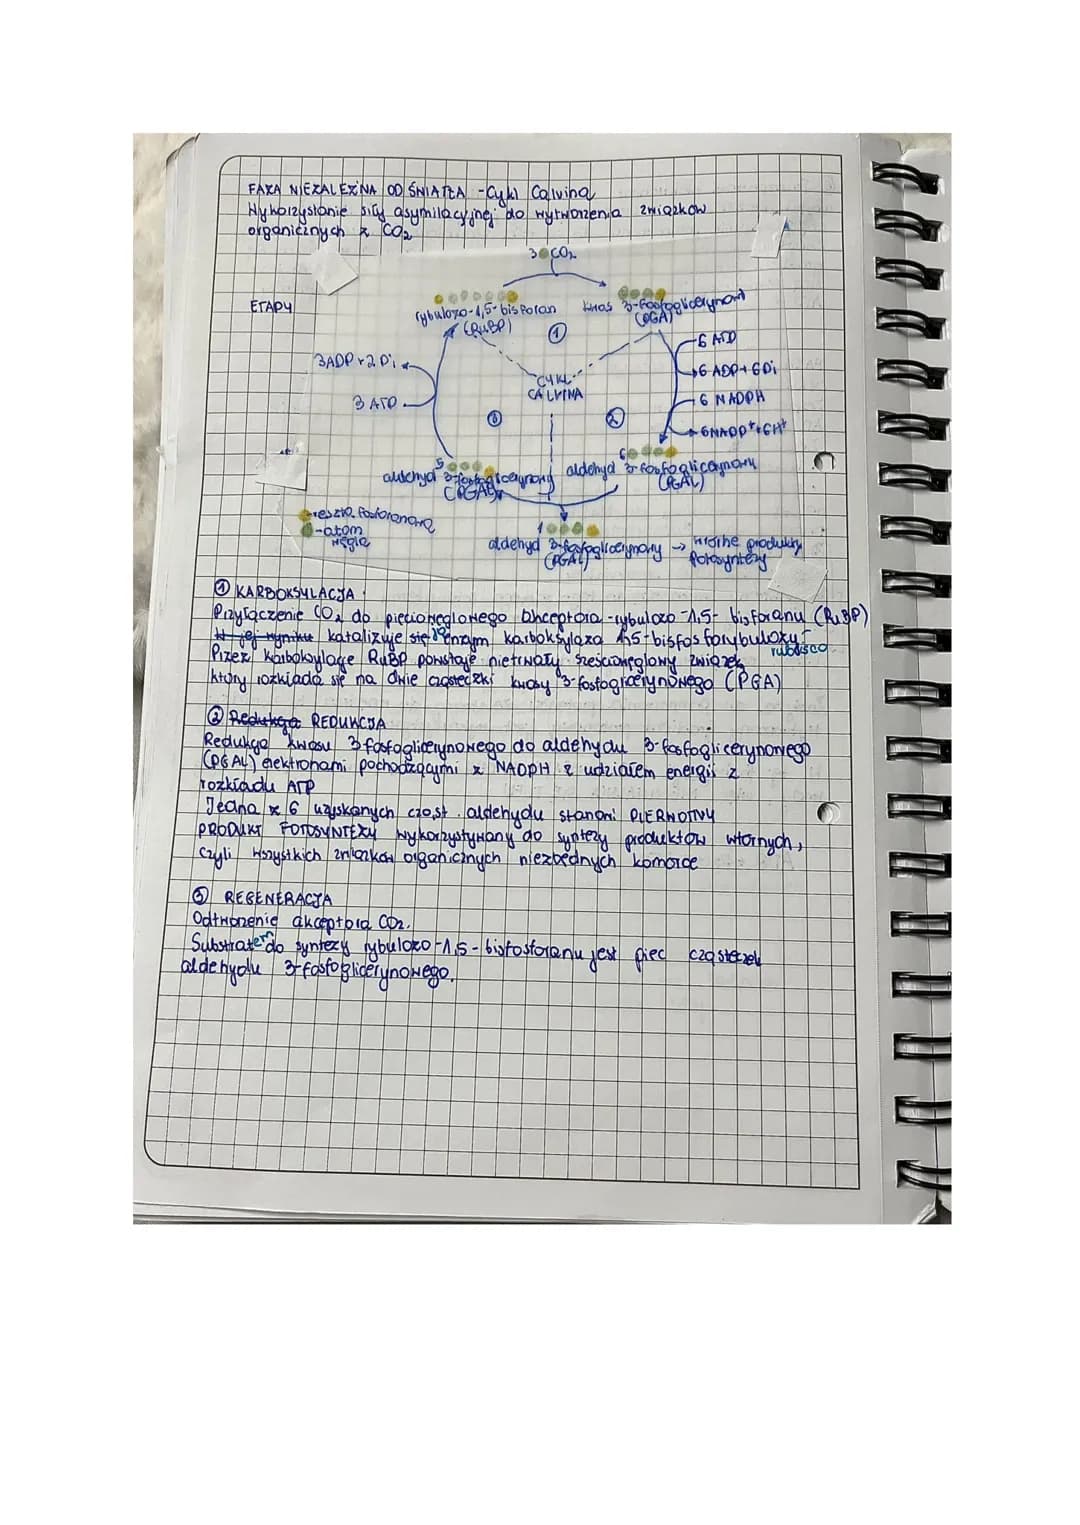 FAZA NIEZALEŻNA OD ŚWIATŁA - Cykl Calvina
Wykorzystanie siły asymilacyjnej do wytworzenia związków
organicznych z CO₂
3 CO₂
ETAPY
rybulozo-1,5-bisforan
(RuBP)
kwas 3-fosfoglicerynowy
(PGA)
①
6 ATP
3ADP + 2Pi
6 ADP + 6Pi
CYKL
CALVINA
3 ATP
6 NADPH
③
②
6NADP⁺ + 6H⁺
5
6
aldehyd 3-fosfoglicerynowy
(PGAL)
aldehyd 3-fosfoglicerynowy
(PGAL)
-reszta fosforanowa
-atom
węgla
1
aldehyd 3-fosfoglicerynowy → wtórne produkty
(PGAL) fotosyntezy
① KARBOKSYLACJA
Przyłączenie CO₂ do pięciowęglowego akceptora - rybulozo-1,5-bisforanu (RuBP)
katalizuje ją enzym karboksylaza 1,5-bisfosforybulozy-
rubisco
Przez karboksylację RuBP powstaje nietrwały sześciowęglowy związek,
który rozkłada się na dwie cząsteczki kwasu 3-fosfoglicerynowego (PGA)
② Redukcja REDUKCJA
Redukcja kwasu 3 fosfoglicerynowego do aldehydu 3-fosfoglicerynowego
(PGAL) elektronami pochodzącymi z NADPH z udziałem energii z
rozkładu ATP
Jedna z 6 uzyskanych cząst. aldehydu stanowi PIERWOTNY
PRODUKT FOTOSYNTEZY wykorzystywany do syntezy produktów wtórnych,
czyli wszystkich związków organicznych niezbędnych komórce
③ REGENERACJA
Odtworzenie akceptora CO₂.
Substratem do syntezy rybulozo-1,5-bisfosforanu jest pięć cząsteczek
aldehydu 3-fosfoglicerynowego.